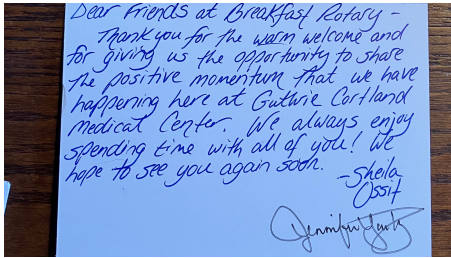 Dear Friends at Breakfast Rotary -
Thank you for the warm welcome and
for giving us the opportunity to share
the positive momentum that we have
happening here at Guthrie Cortland
Medical Center. We always enjoy
spending time with all of you! We
hope to see you again soon.
-Sheila
Ossit
Jennifer